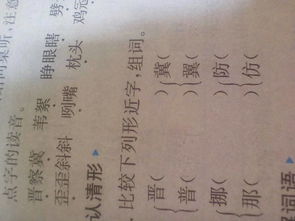 点字的读音。
晋察冀 苇絮 睁眼瞎 劈
歪歪斜斜 咧嘴 枕头 鸡冠
认清形
比较下列形近字,组词。
晋( ) 冀( )
普( ) 翼( )
挪( ) 防( )
那( ) 仿( )
词语